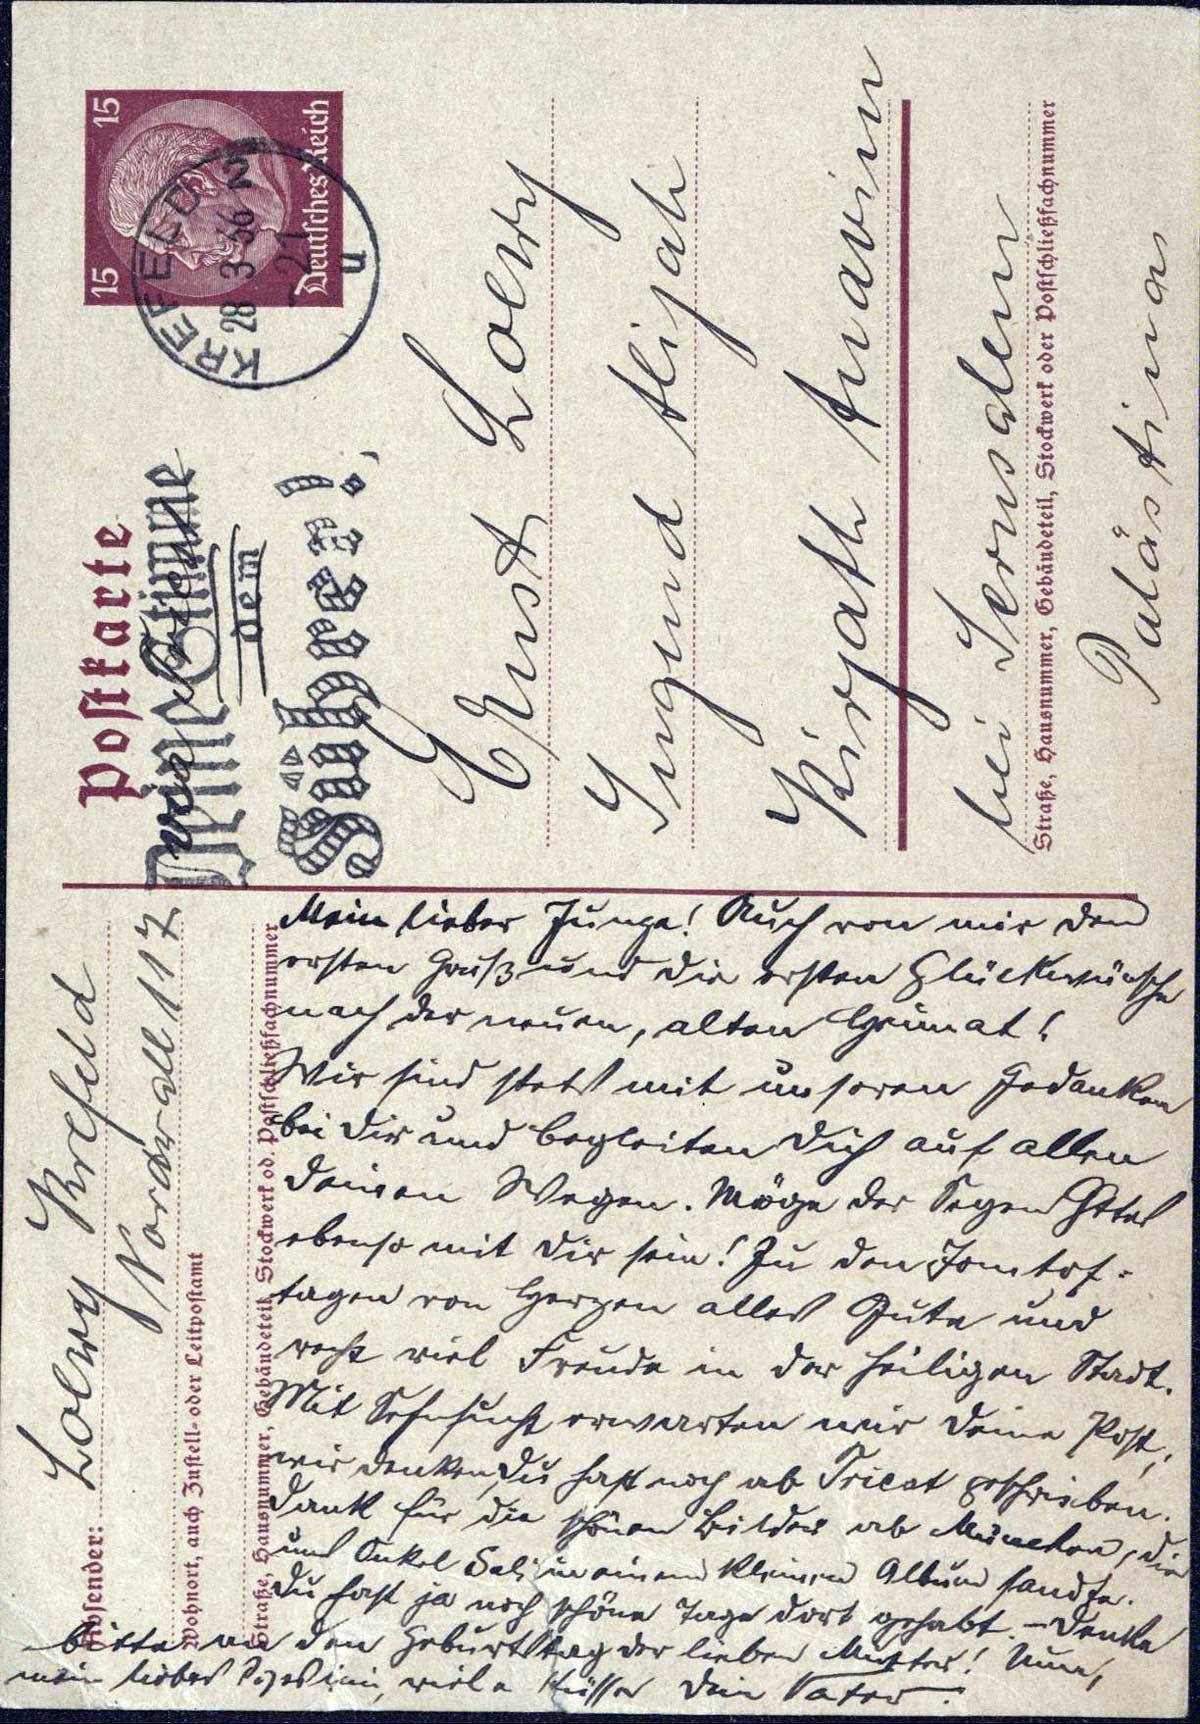 Postkarte
15
15
Deutsches Reich
KREFELD 2
28 3 36
21
u
Deine Stimme
dem
Führer!
Ernst Loewy
Jugend Alijah
Kirjath Anavim
bei Jerusalem
Straße, Hausnummer, Gebäudeteil, Stockwerk oder Postschließfachnummer
Palästina
Absender: Loewy Krefeld
Nordwall 117
Wohnort, auch Zustell- oder Leitpostamt
Straße, Hausnummer, Gebäudeteil, Stockwerk od. Postschließfachnummer
Mein lieber Junge! Auch von mir den
ersten Gruß und die ersten Glückwünsche
nach der neuen, alten Heimat!
Wir sind stets mit unseren Gedanken
bei Dir und begleiten Dich auf allen
deinen Wegen. Möge der Segen Gottes
ebenso mit Dir sein! Zu den Jomtof-
tagen von Herzen alles Gute und
recht viel Freude in der heiligen Stadt.
Mit Sehnsucht erwarten wir Deine Post,
wir denken, Du hast noch ab Triest geschrieben.
Dank für die schönen Bilder ab München, die
uns Onkel Sali in einem kleinen Album sandte.
Du hast ja noch schöne Tage dort gehabt. – Denke
bitte an den Geburtstag der lieben Mutter! Nun,
mein lieber, viele Küsse Dein Vater.